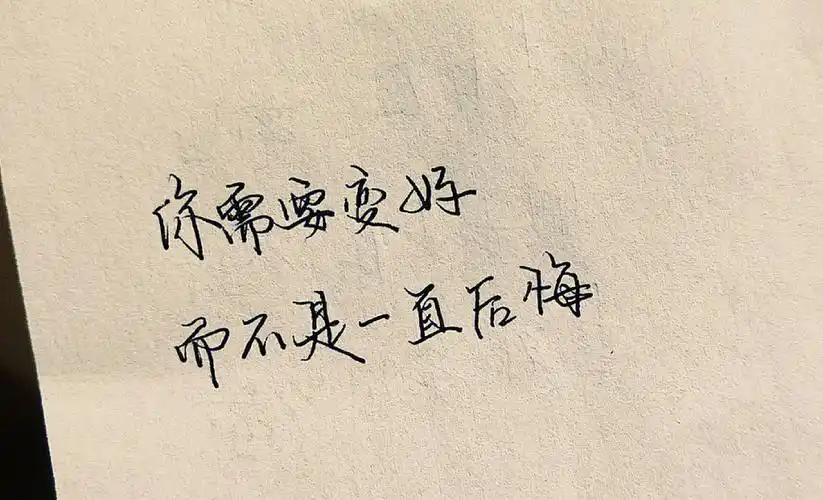 你需要变好
而不是一直后悔